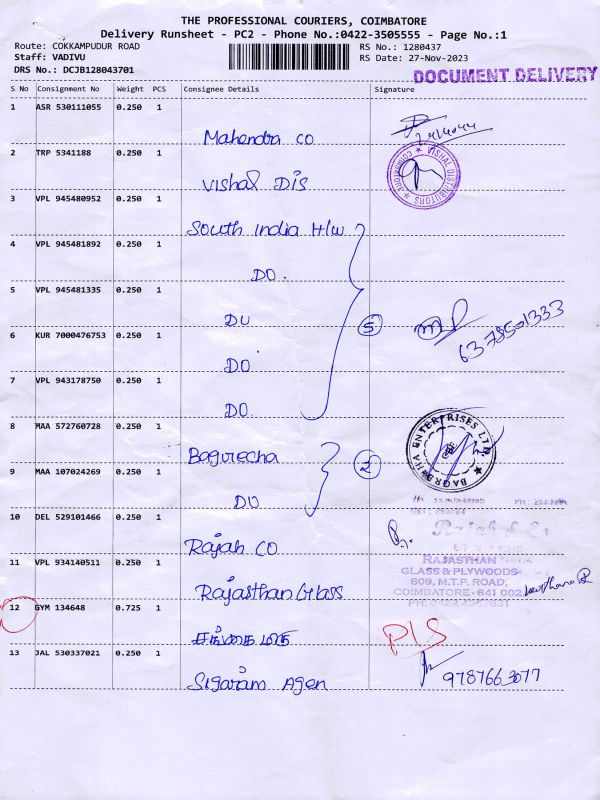 THE PROFESSIONAL COURIERS, COIMBATORE
Delivery Runsheet - PC2 - Phone No.:0422-3505555 - Page No.:1
Route: COKKAMPUDUR ROAD
RS No.: 1280437
Staff: VADIVU
RS Date: 27-Nov-2023
DRS No.: DCJB128043701
DOCUMENT DELIVERY
S No Consignment No Weight PCS Consignee Details Signature
1 ASR 530111055 0.250 1
Mahendra CO
2 TRP 5341188 0.250 1
VISHAL DISTRIBUTORS
Vishal DIS
3 VPL 945480952 0.250 1
South India H/W
4 VPL 945481892 0.250 1
DO.
5 VPL 945481335 0.250 1
DO
5
6378501333
6 KUR 7000476753 0.250 1
DO
7 VPL 943178750 0.250 1
DO.
8 MAA 572760728 0.250 1
ENTERPRISES LTD
Bagrecha
2
9 MAA 107024269 0.250 1
DO
10 DEL 529101466 0.250 1
Rajah CO
11 VPL 934140511 0.250 1
RAJASTHAN
GLASS & PLYWOODS
809, M.T.P. ROAD,
COIMBATORE-641 002
Rajasthan Glass
12 GYM 134648 0.725 1
P/S
13 JAL 530337021 0.250 1
Sigaram Agen
9787663077